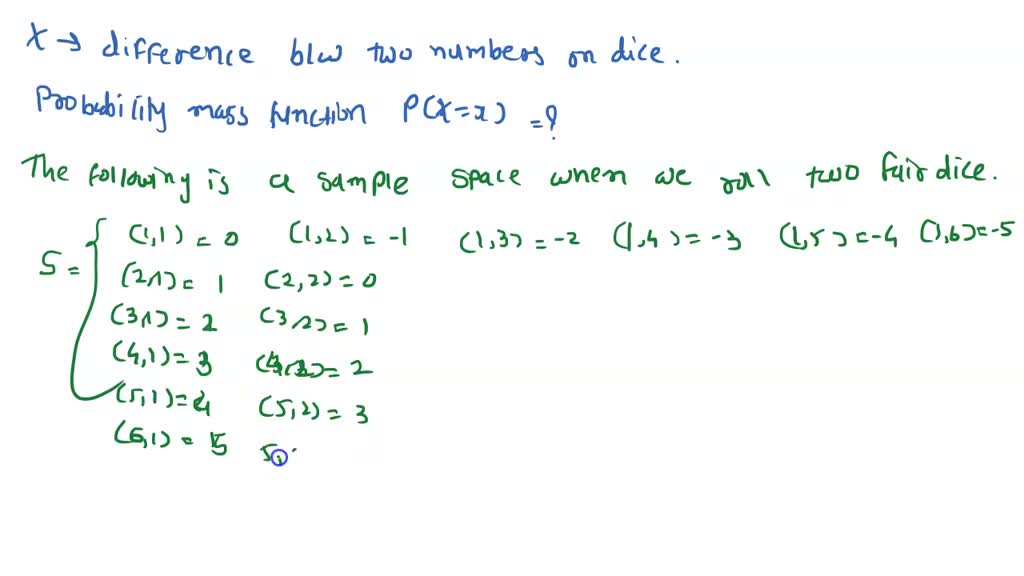 X → difference b/w two numbers on dice.
Probability mass function P(X=x) = ?
The following is a sample space when we roll two fair dice.
S = { (1,1) = 0 (1,2) = -1 (1,3) = -2 (1,4) = -3 (1,5) = -4 (1,6) = -5
(2,1) = 1 (2,2) = 0
(3,1) = 2 (3,2) = 1
(4,1) = 3 (4,2) = 2
(5,1) = 4 (5,2) = 3
(6,1) = 5 5,